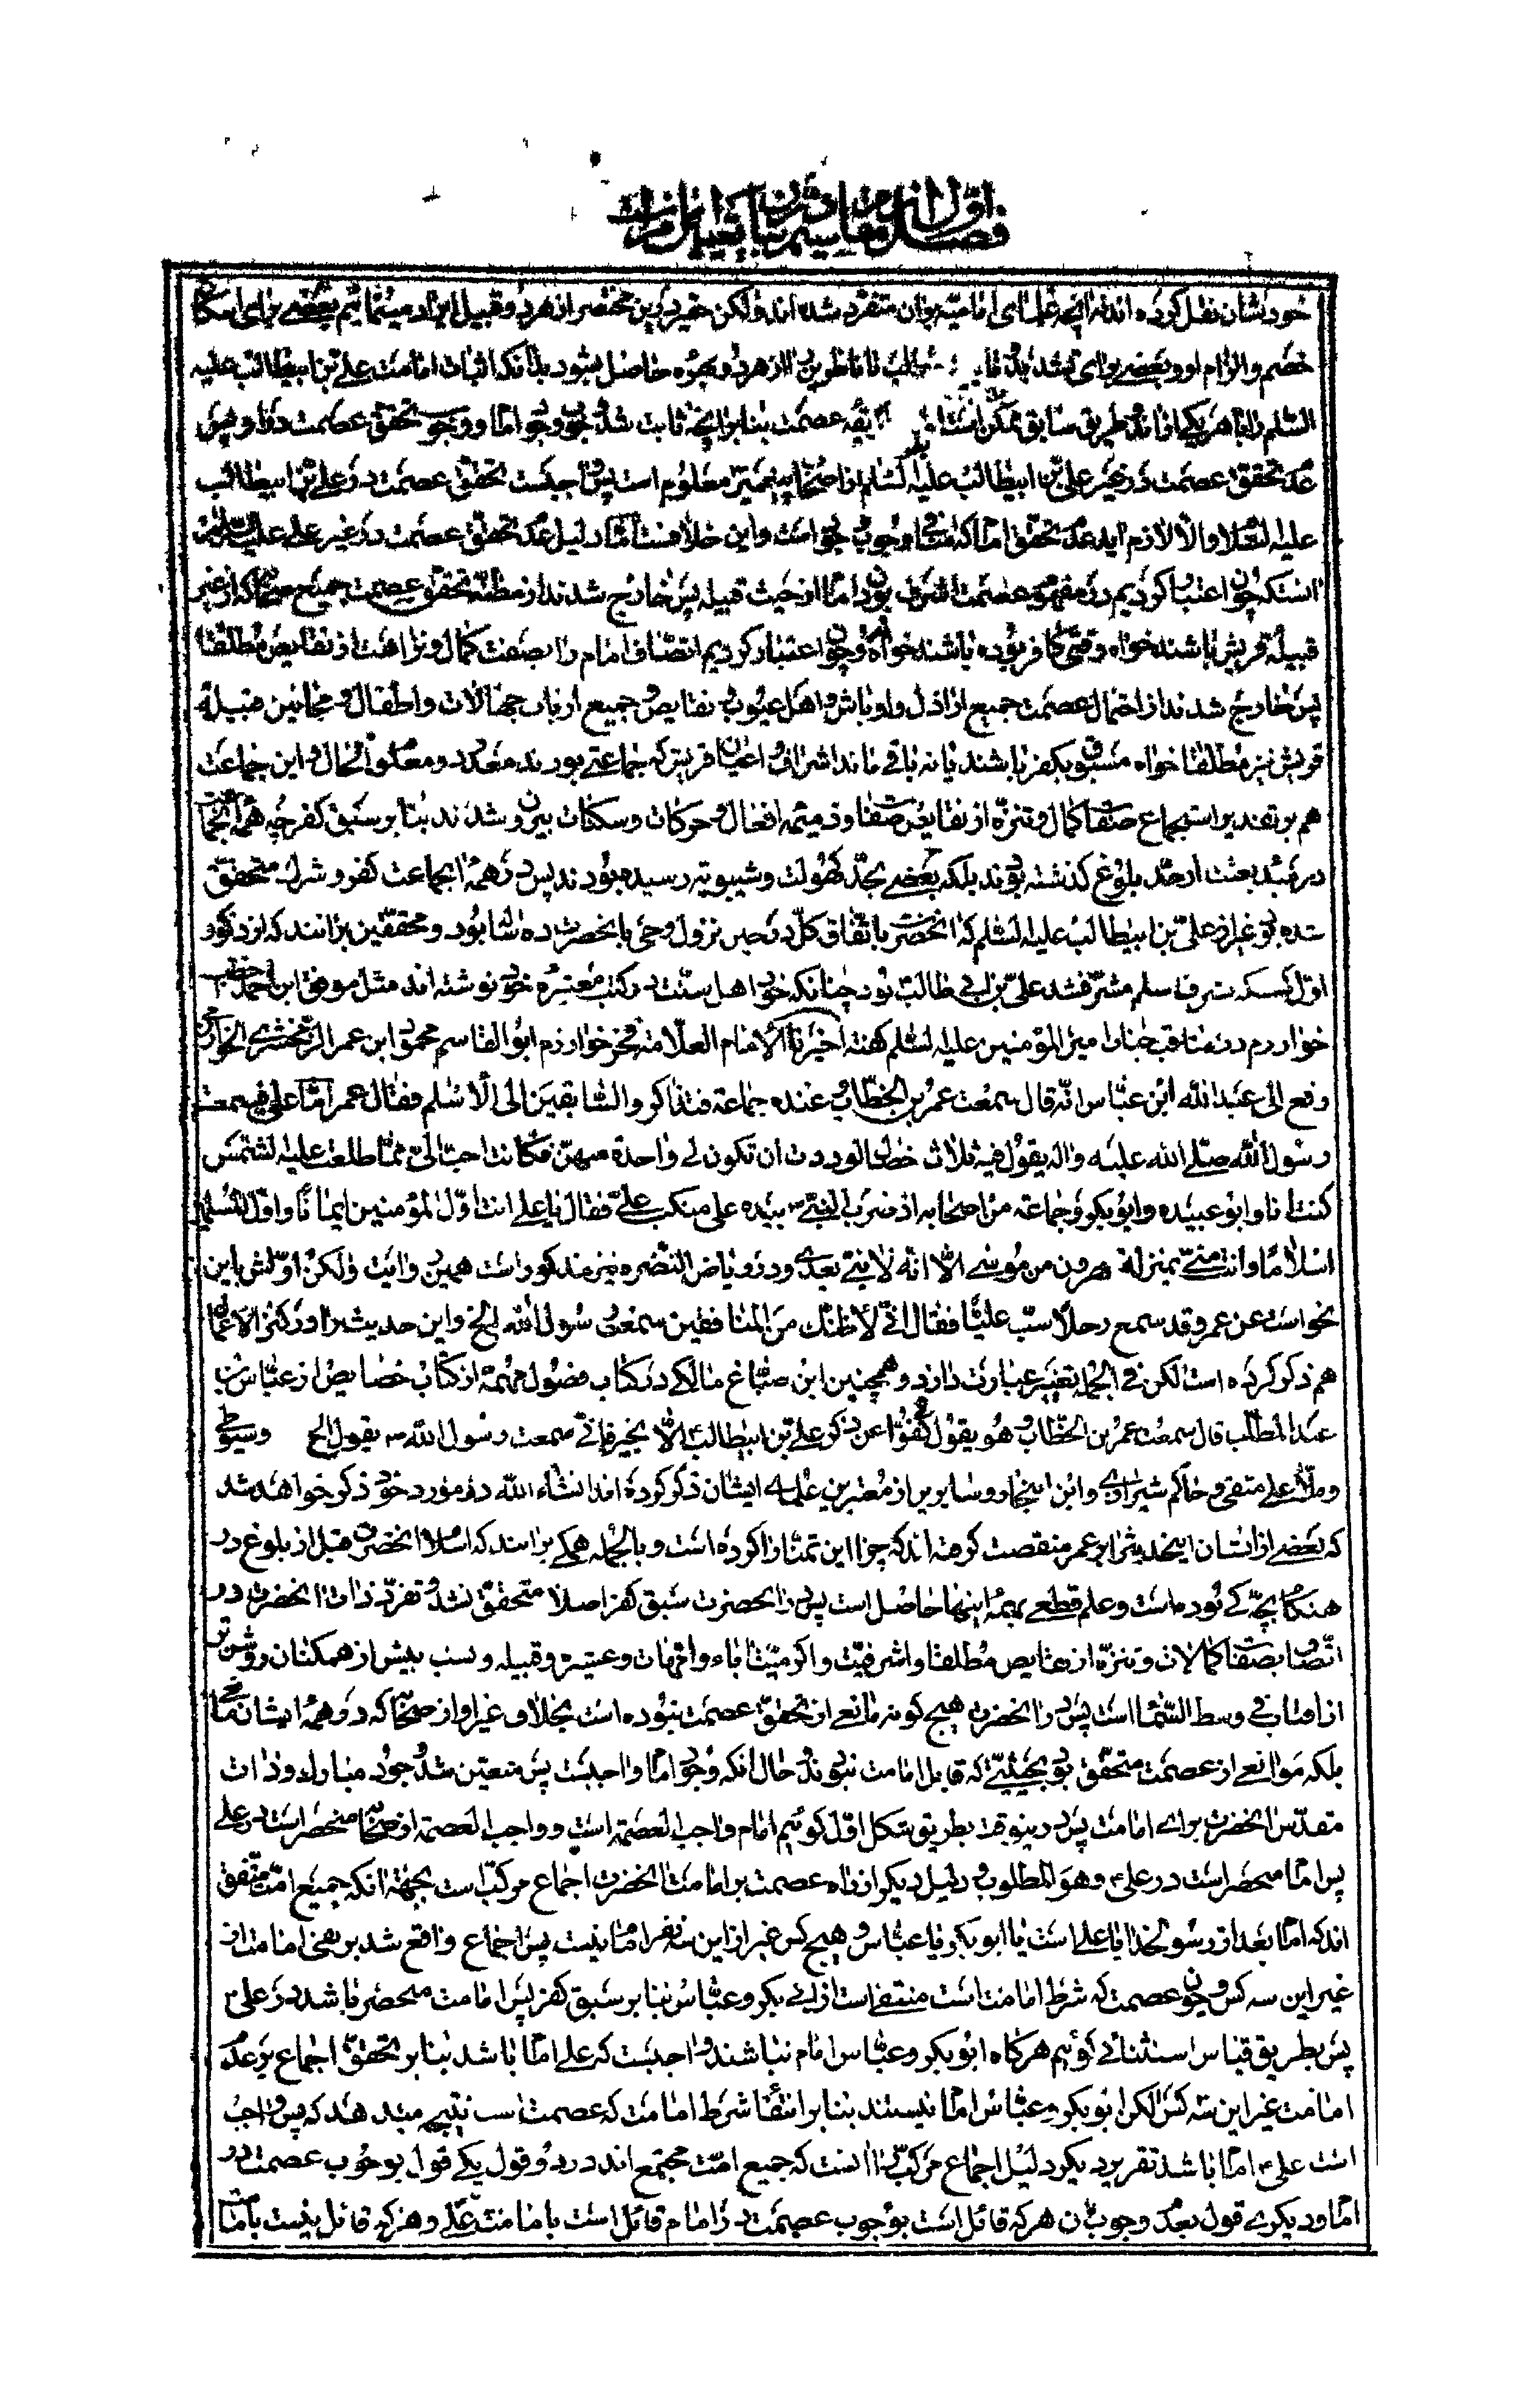 فصل اول از
خودشان نقل کرده اند نه انچه علمای امامیه بدان متفرد شده اند ولکن حقیر درین مختصر از هر دو قبیل ایراد مینمائیم بعضی برای اسکات
خصم و الزام او و بعضی برای تشدید تا ناظرین را از هر دو بهره حاصل شود بدانکه اثبات امامت علی بن ابیطالب علیه
السلم را با هر یک از طریق سابق ممکن است عصمت بنا بر آنچه ثابت شد وجوب وجود امام و وجوب تحقق عصمت در او چون
عدم تحقق عصمت در غیر علی بن ابیطالب علیه السلم از اصحاب پیغمبر معلوم است پس واجبست تحقق عصمت در علی بن ابیطالب
علیه السلام والا لازم آید عدم تحقق امام که منافی وجوب امامت و این خلافست اما دلیل عدم تحقق عصمت در غیر علی علیه السلم این
استکه چون اعتبار کردیم در مفهوم عصمت اشرف بودن امام از حیث قبیله پس خارج شدند از مظنه تحقق عصمت جمیع صحابه که از غیر
قبیله قریش باشند خواه وقتی کافر بوده باشند خواه نه و چون اعتبار کردیم اتصاف امام را بصفت کمال و نزاهت از نقایص مطلقا
پس خارج شدند از احتمال عصمت جمیع اراذل و اوباش و اهل عیوب و نقایص و جمیع ارباب جهالات و اطفال و مجانین قبیله
قریش نیز مطلقا خواه مسبوق بکفر باشند یا نه باقی ماند اشراف و اعیان قریش که جماعتی بودند معدود و معلوم الحال و این جماعت
هم بر تقدیر استجماع صفات کمال و تنزه از نقایص صفات و ذمیمه افعال و حرکات و سکنات بیرون شدند بنا بر سبق کفر چه همه آنجماعت
در مبدء بعثت از حد بلوغ گذشته بودند بلکه بعضی بحد کهولت و شیبوبه رسیده بودند پس در همه آنجماعت کفر و شرک متحقق
شده بود غیر از علی بن ابیطالب علیه السلم که آنحضرت باتفاق کل در حین نزول وحی بانحضرت ده ساله بود و محققین برانند که از ذکور
اول کسیکه بشرف اسلم مشرف شد علی بن ابی طالب بود چنانکه خود اهل سنت در کتب معتبره خود نوشته اند مثل موفق ابن احمد خطیب
خوارزم در مناقب جناب امیر المؤمنین علیه السلم گفته اخبرنا الامام العلامة فخر خوارزم ابو القاسم محمود ابن عمر الزمخشری الخوارزمی
رفع الی عبد الله ابن عباس انه قال سمعت عمر بن الخطاب و عنده جماعة فتذاکروا السابقین الی الاسلم فقال عمر اما علی فسمعت
رسول الله صلی الله علیه واله یقول فیه ثلاث خصال لوددت ان تکون لی واحدة منهن فکانت احب الی مما طلعت علیه الشمس
کنت انا و ابو عبیده و ابو بکر و جماعة من اصحابه اذ ضرب النبی ص بیده علی منکب علی فقال یا علی انت اول المؤمنین ایمانا و اول المسلمین
اسلاما و انت منی بمنزلة هرون من موسی الا انه لا نبی بعدی و در ریاض النضره نیز مذکور است همین روایت ولکن اولش باین
نحو است عن عمر و قد سمع رجلا سب علیا فقال انی لاظنک من المنافقین سمعت رسول الله الخ و این حدیث را در کنز العمال
هم ذکر کرده است لکن فی الجمله تغییر عبارت دارد و همچنین ابن صباغ مالکی در کتاب فصول مهمه از کتاب خصایص از عباس بن
عبد المطلب قال سمعت عمر بن الخطاب و هو یقول کفوا عن ذکر علی بن ابیطالب الا بخیر فانی سمعت رسول الله ص یقول الخ و سیوطی
و ملا علی متقی و حاکم و شیرازی و ابن النجار و سایرین از معتبرین علمای ایشان ذکر کرده اند انشاء الله در مورد خود ذکر خواهد شد
که بعضی از ایشان اینحدیث را بر عمر منقصت گرفته اند که چرا این تمنا را کرده است و بالجمله همگی برانند که اسلام آنحضرت قبل از بلوغ در
هنگام بچگی بوده است و علم قطعی بهمه اینها حاصل است پس در آنحضرت سبق کفر اصلا متحقق نشد و تفرد ذات آنحضرت در
اتصاف بصفات کمالات و تنزه از نقایص مطلقا و اشرفیت و اکرمیت اباء و امهات و عشیره و قبیله و نسب بیش از همگنان روشن تر
از افتاب فی وسط السماء است پس در آنحضرت هیچ گونه مانعی از تحقق عصمت نبوده است بخلاف غیر او از صحابه که در همه ایشان مانع
بلکه موانعی از عصمت متحقق بود بحیثیتی که قابل امامت نبودند و حال آنکه وجود امام واجبست پس متعین شد وجود مبارک و ذات
مقدس آنحضرت برای امامت پس درینوقت بطریق شکل اول گوئیم امام واجب العصمة است و واجب العصمة از صحابه منحصر است در علی
پس امام منحصر است در علی و هو المطلوب و دلیل دیگر از راه عصمت بر امامت آنحضرت اجماع مرکب است بجهة انکه جمیع امت متفق
اند که امام بعد از رسولخدا یا علی است یا ابو بکر یا عباس و هیچ کس غیر از این سه نفر امام نیست پس اجماع واقع شد بر نفی امامت از
غیر این سه کس و چون عصمت که شرط امامت است منتفی است از ابی بکر و عباس بنا بر سبق کفر پس امامت منحصر باشد در علی
پس بطریق قیاس استثنائی گوئیم هرگاه ابو بکر و عباس امام نباشند واجبست که علی امام باشد بنا بر تحقق اجماع بر عدم
امامت غیر این سه کس لکن ابو بکر و عباس امام نیستند بنا بر انتفاء شرط امامت که عصمت است نتیجه میدهد که پس واجب
است علی امام باشد تقریر دیگر دلیل اجماع مرکب را انست که جمیع امت مجتمع اند در دو قول یکی قول بوجوب عصمت در
امام و دیگری قول بعدم وجوب آن هر که قائل است بوجوب عصمت در امام قائل است بامامت علی و هر که قائل نیست بامامت